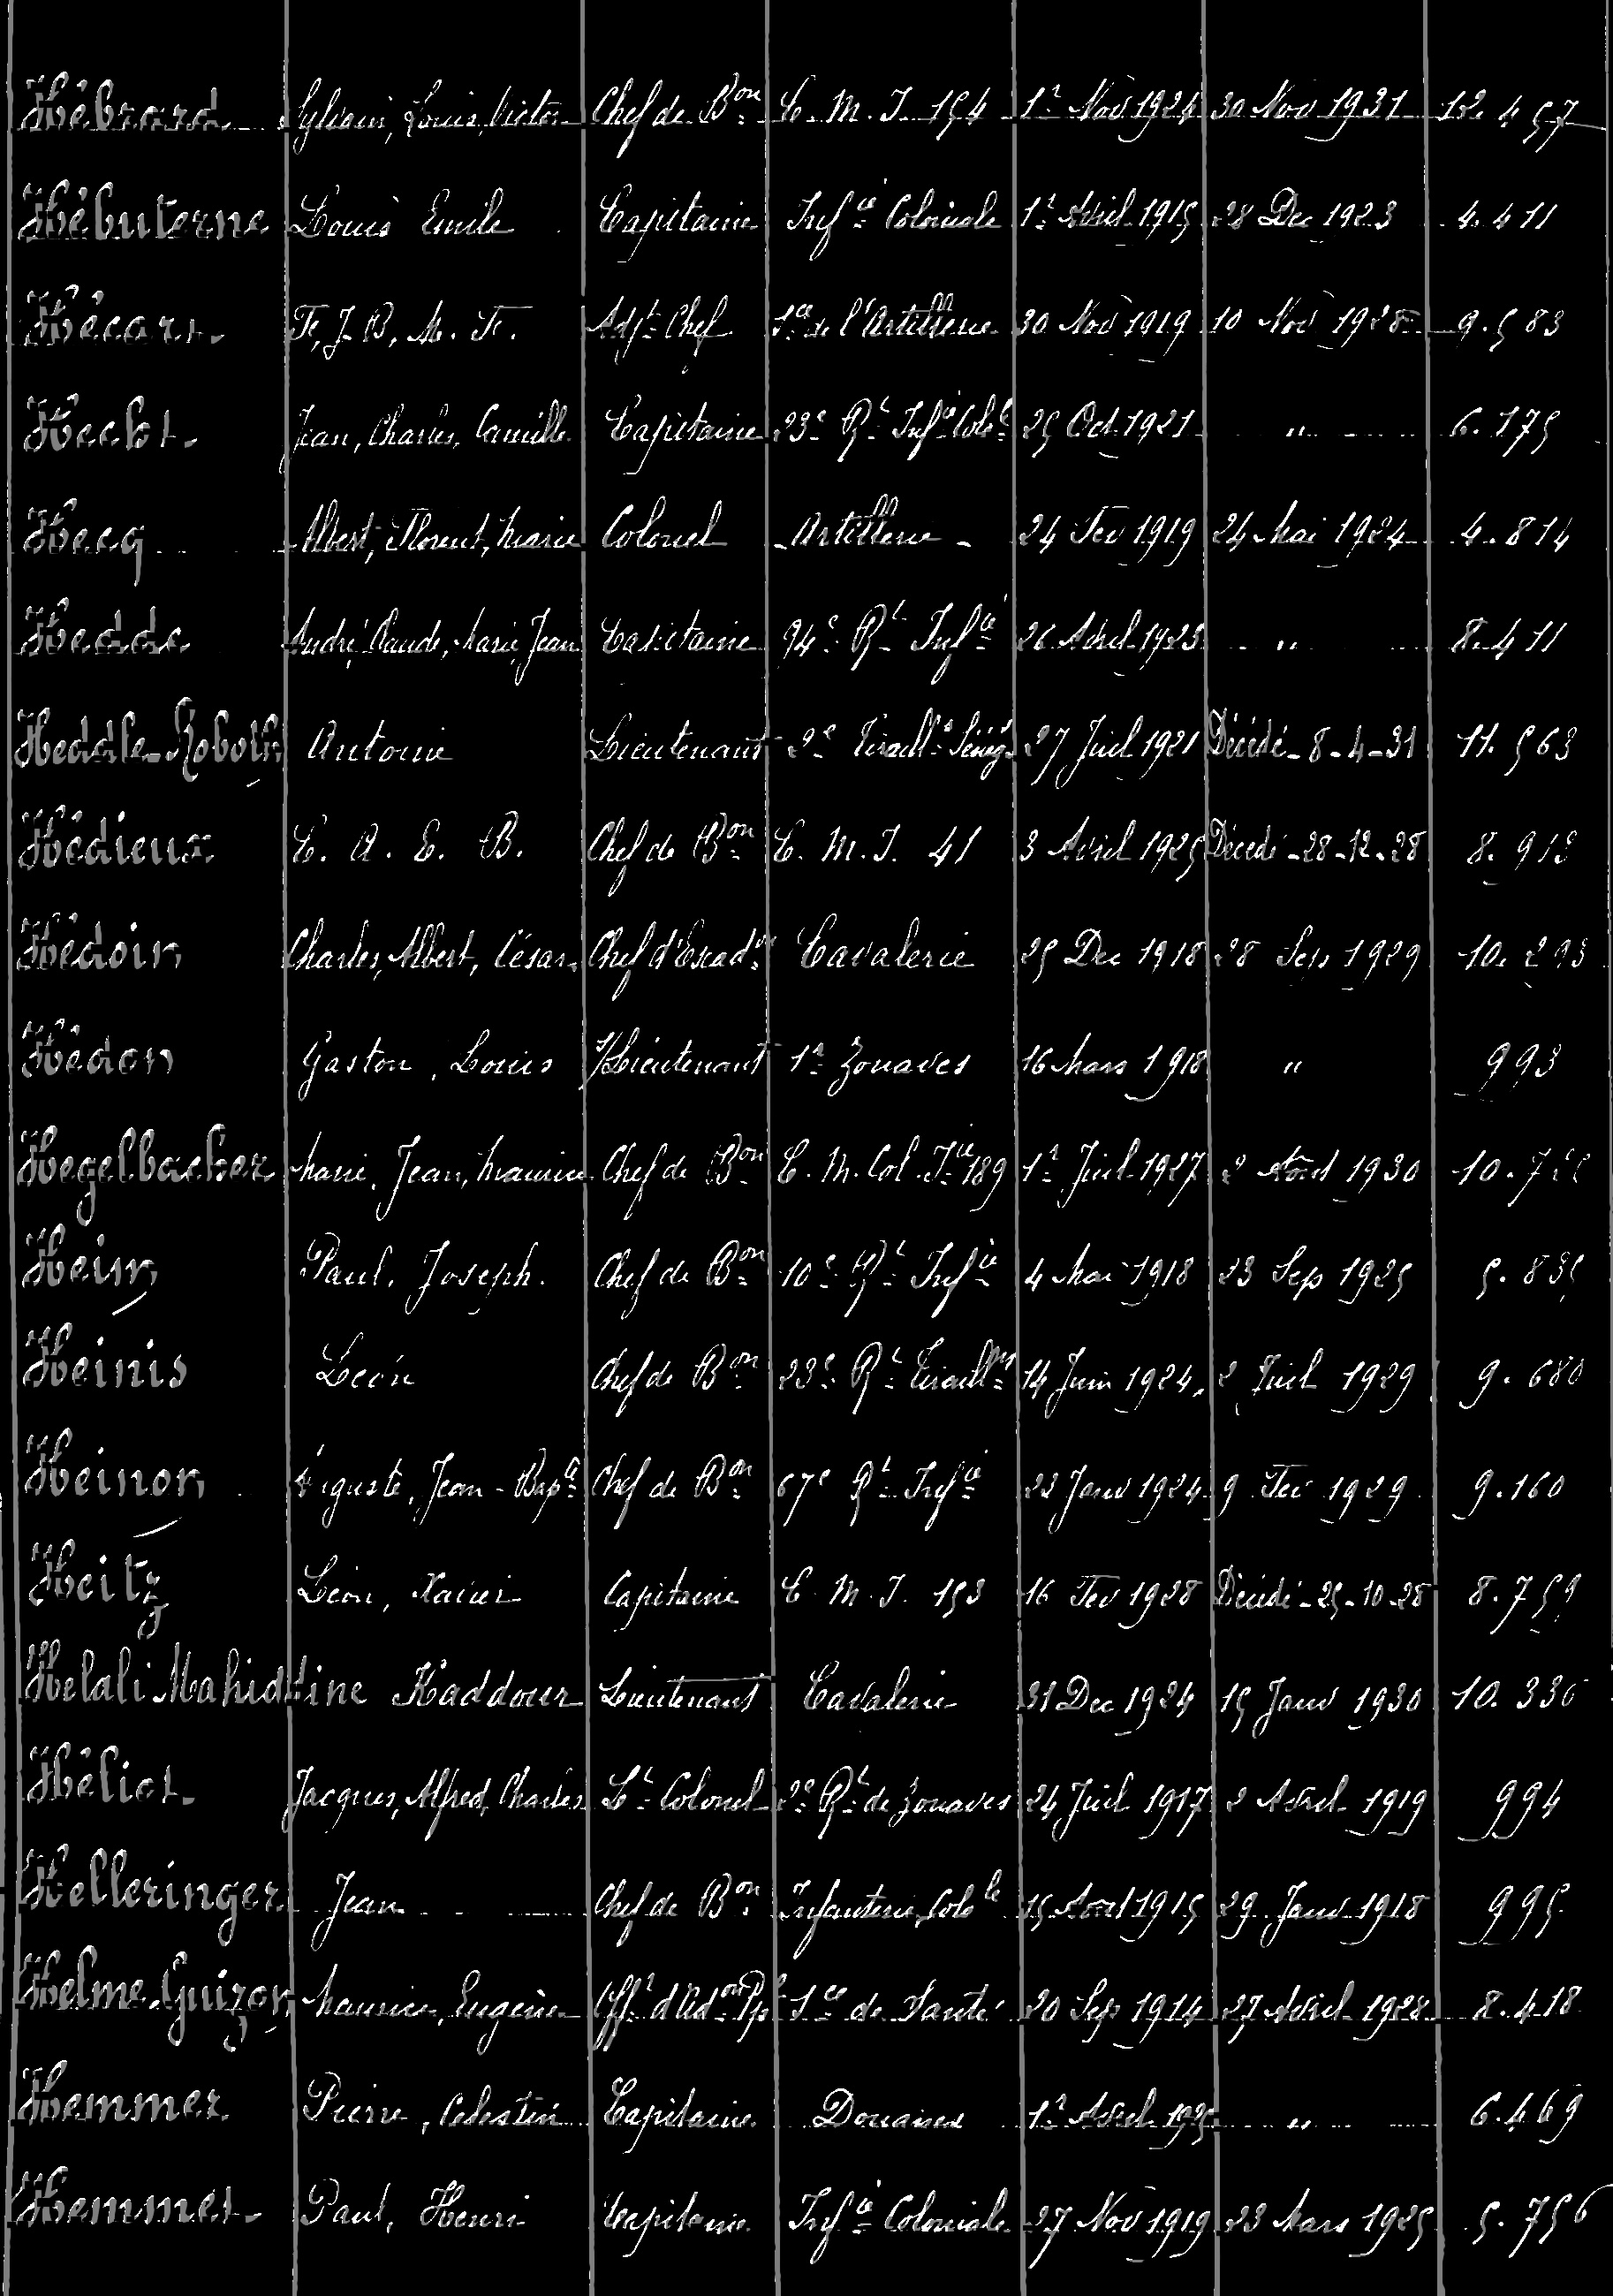 Hébrard Sylvain, Louis, Victor Chef de Bon C. M. I. 154 1r Nov 1924 30 Nov 1931 12.457
Hébuterne Louis Emile Capitaine Infie Coloniale 1r Avril 1915 28 Dec 1923 4.411
Hécart F, J. B, M. F. Adjt Chef Sce de l'Artillerie 30 Nov 1919 10 Nov 1928 9.583
Hecht Jean, Charles, Camille Capitaine 23e Rt Infie Colle 25 Oct 1921 " 6.175
Hecq Albert, Florent, Marie Colonel Artillerie 24 Fev 1919 24 Mai 1924 4.814
Hedde André, Claude, Marie, Jean Capitaine 94e Rt Infie 26 Avril 1925 " 8.411
Heddle-Roboth Antoine Lieutenant 2e Tiraillrs Sénég 27 Juil 1921 Décédé-8-4-31 11.563
Hédieux C. A. E. B. Chef de Bon C. M. I. 41 3 Avril 1925 Décédé-28-12-28 8.918
Hédoin Charles, Albert, César Chef d'Escadr Cavalerie 25 Dec 1918 28 Sep 1929 10.293
Hédon Gaston, Louis S/Lieutenant 1r Zouaves 16 Mars 1918 " 993
Hegelbacher Marie, Jean, Maurice Chef de Bon C. M. Col. Iie 189 1r Juil 1927 2 Aout 1930
Heim Paul, Joseph. Chef de Bon 10e Rt Infie 4 Mai 1918 23 Sep 1925
Heinis Léon Chef de Bon 23e Rt Tiraillrs 14 Juin 1924 2 Juil 1929 9.680
Heinon Auguste, Jean-Bapte Chef de Bon 67e Rt Infie 23 Janv 1924 9 Fev 1929 9.160
Heitz Léon, Xavier Capitaine C. M. I. 153 16 Fev 1928 Décédé-25-10-28 8.759
Helali Mahiddine Kaddour Lieutenant Cavalerie 31 Dec 1924 15 Janv 1930 10.336
Héliot Jacques, Alfred, Charles Lt Colonel 2e Rt de Zouaves 24 Juil 1917 2 Avril 1919 994
Helleringer Jean Chef de Bon Infanterie Colle 15 Aout 1915 29 Janv 1918 995
Helme-Guizon Maurice, Eugène Offr d'Adon Ppl Sce de Santé 20 Sep 1914 27 Avril 1928 8.418
Hemmer Pierre, Celestin Capitaine Douanes 1r Avril 1925 " 6.469
Hemmet Paul, Henri Capitaine Infie Coloniale 27 Nov 1919 23 Mars 1925 5.756